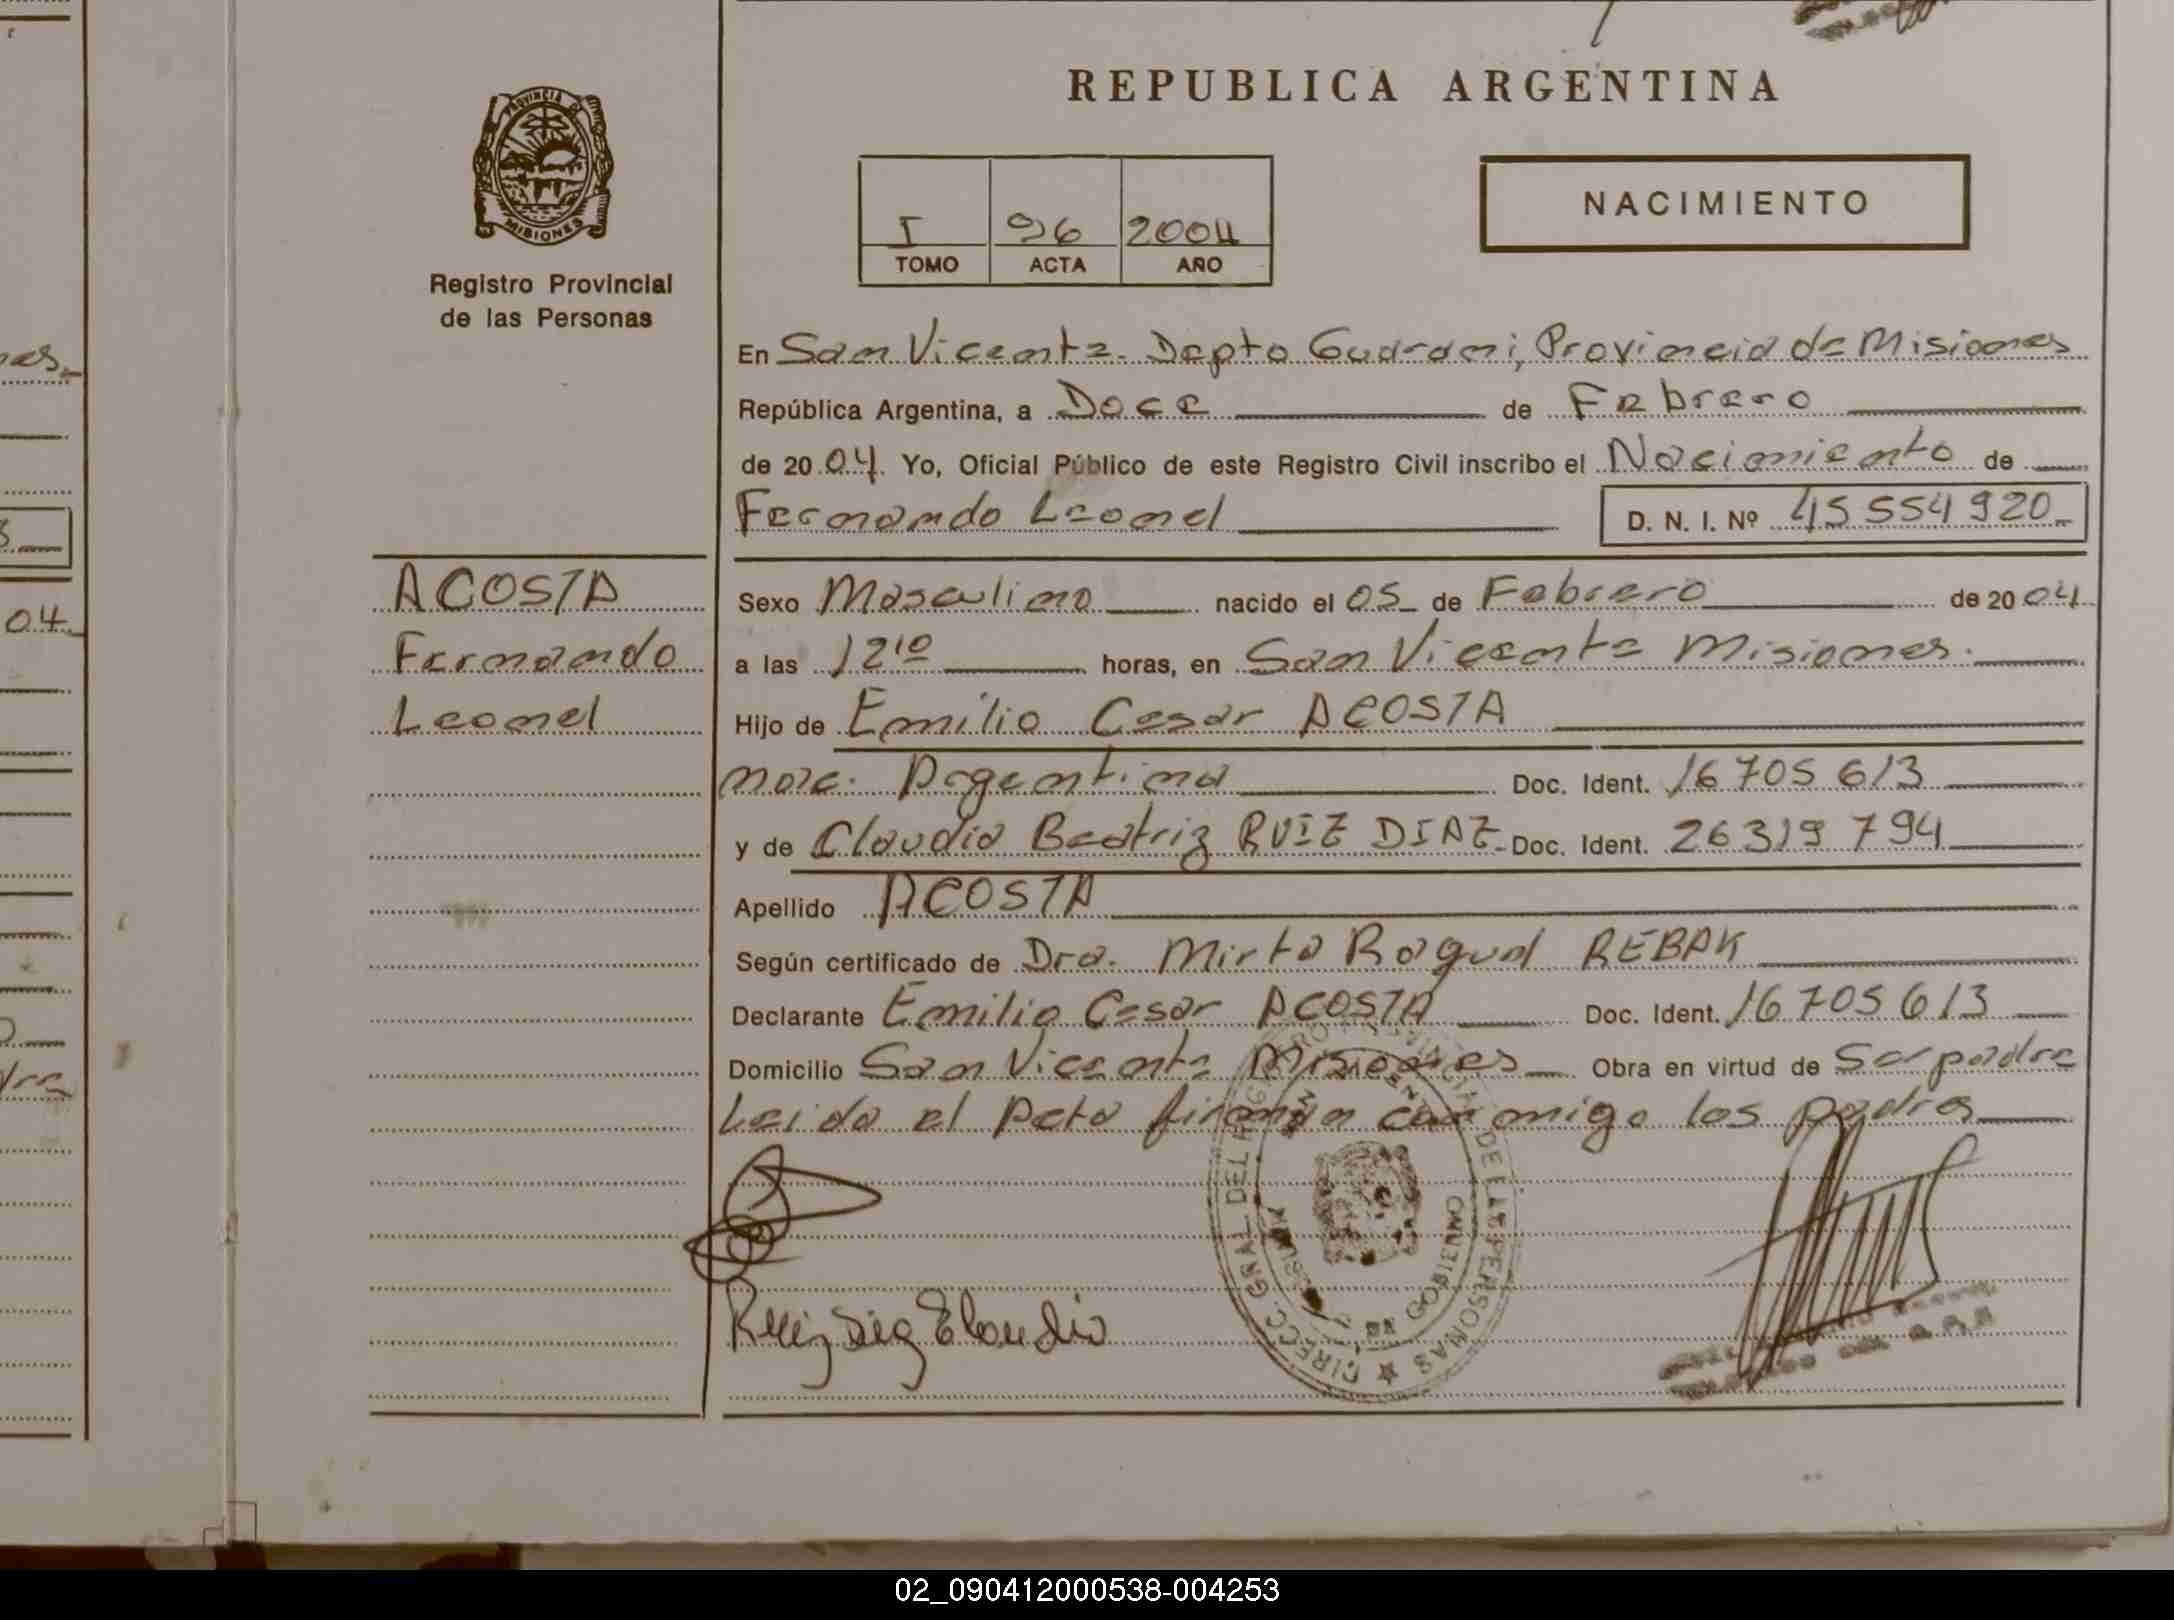 REPUBLICA ARGENTINA
PROVINCIA DE
MISIONES
Registro Provincial
de las Personas
I 96 2004
TOMO ACTA AÑO
NACIMIENTO
En San Vicente. Depto Guarani, Provincia de Misiones
República Argentina, a Doce de Febrero
de 2004. Yo, Oficial Público de este Registro Civil inscribo el Nacimiento de
Fernando Leonel D. N. I. Nº 45 554 920
ACOSTA
Fernando
Leonel
Sexo Masculino nacido el 05 de Febrero de 2004
a las 12¹⁰ horas, en San Vicente Misiones.
Hijo de Emilio Cesar ACOSTA
nac. Argentina Doc. Ident. 16 705 613
y de Claudia Beatriz RUIZ DIAZ Doc. Ident. 26 319 794
Apellido ACOSTA
Según certificado de Dra. Mirta Raquel REBAK
Declarante Emilio Cesar ACOSTA Doc. Ident. 16 705 613
Domicilio San Vicente Misiones Obra en virtud de Ser padre
Leida el Acta firman conmigo los padres
Ruiz Diaz Claudia
DIRECC. GRAL DEL REGISTRO PROVINCIAL DE LAS PERSONAS
MISIONES
02_090412000538-004253